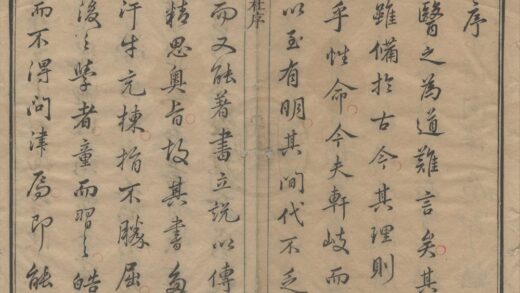 序
醫之為道難言矣其
雖備於古今其理則
乎性命今夫軒岐而
以至有明其間代不乏
杜序
而又能著書立說以傳
精思奧旨故其書多
汗牛充棟指不勝屈
後之學者童而習之皓
而不得問津焉即能